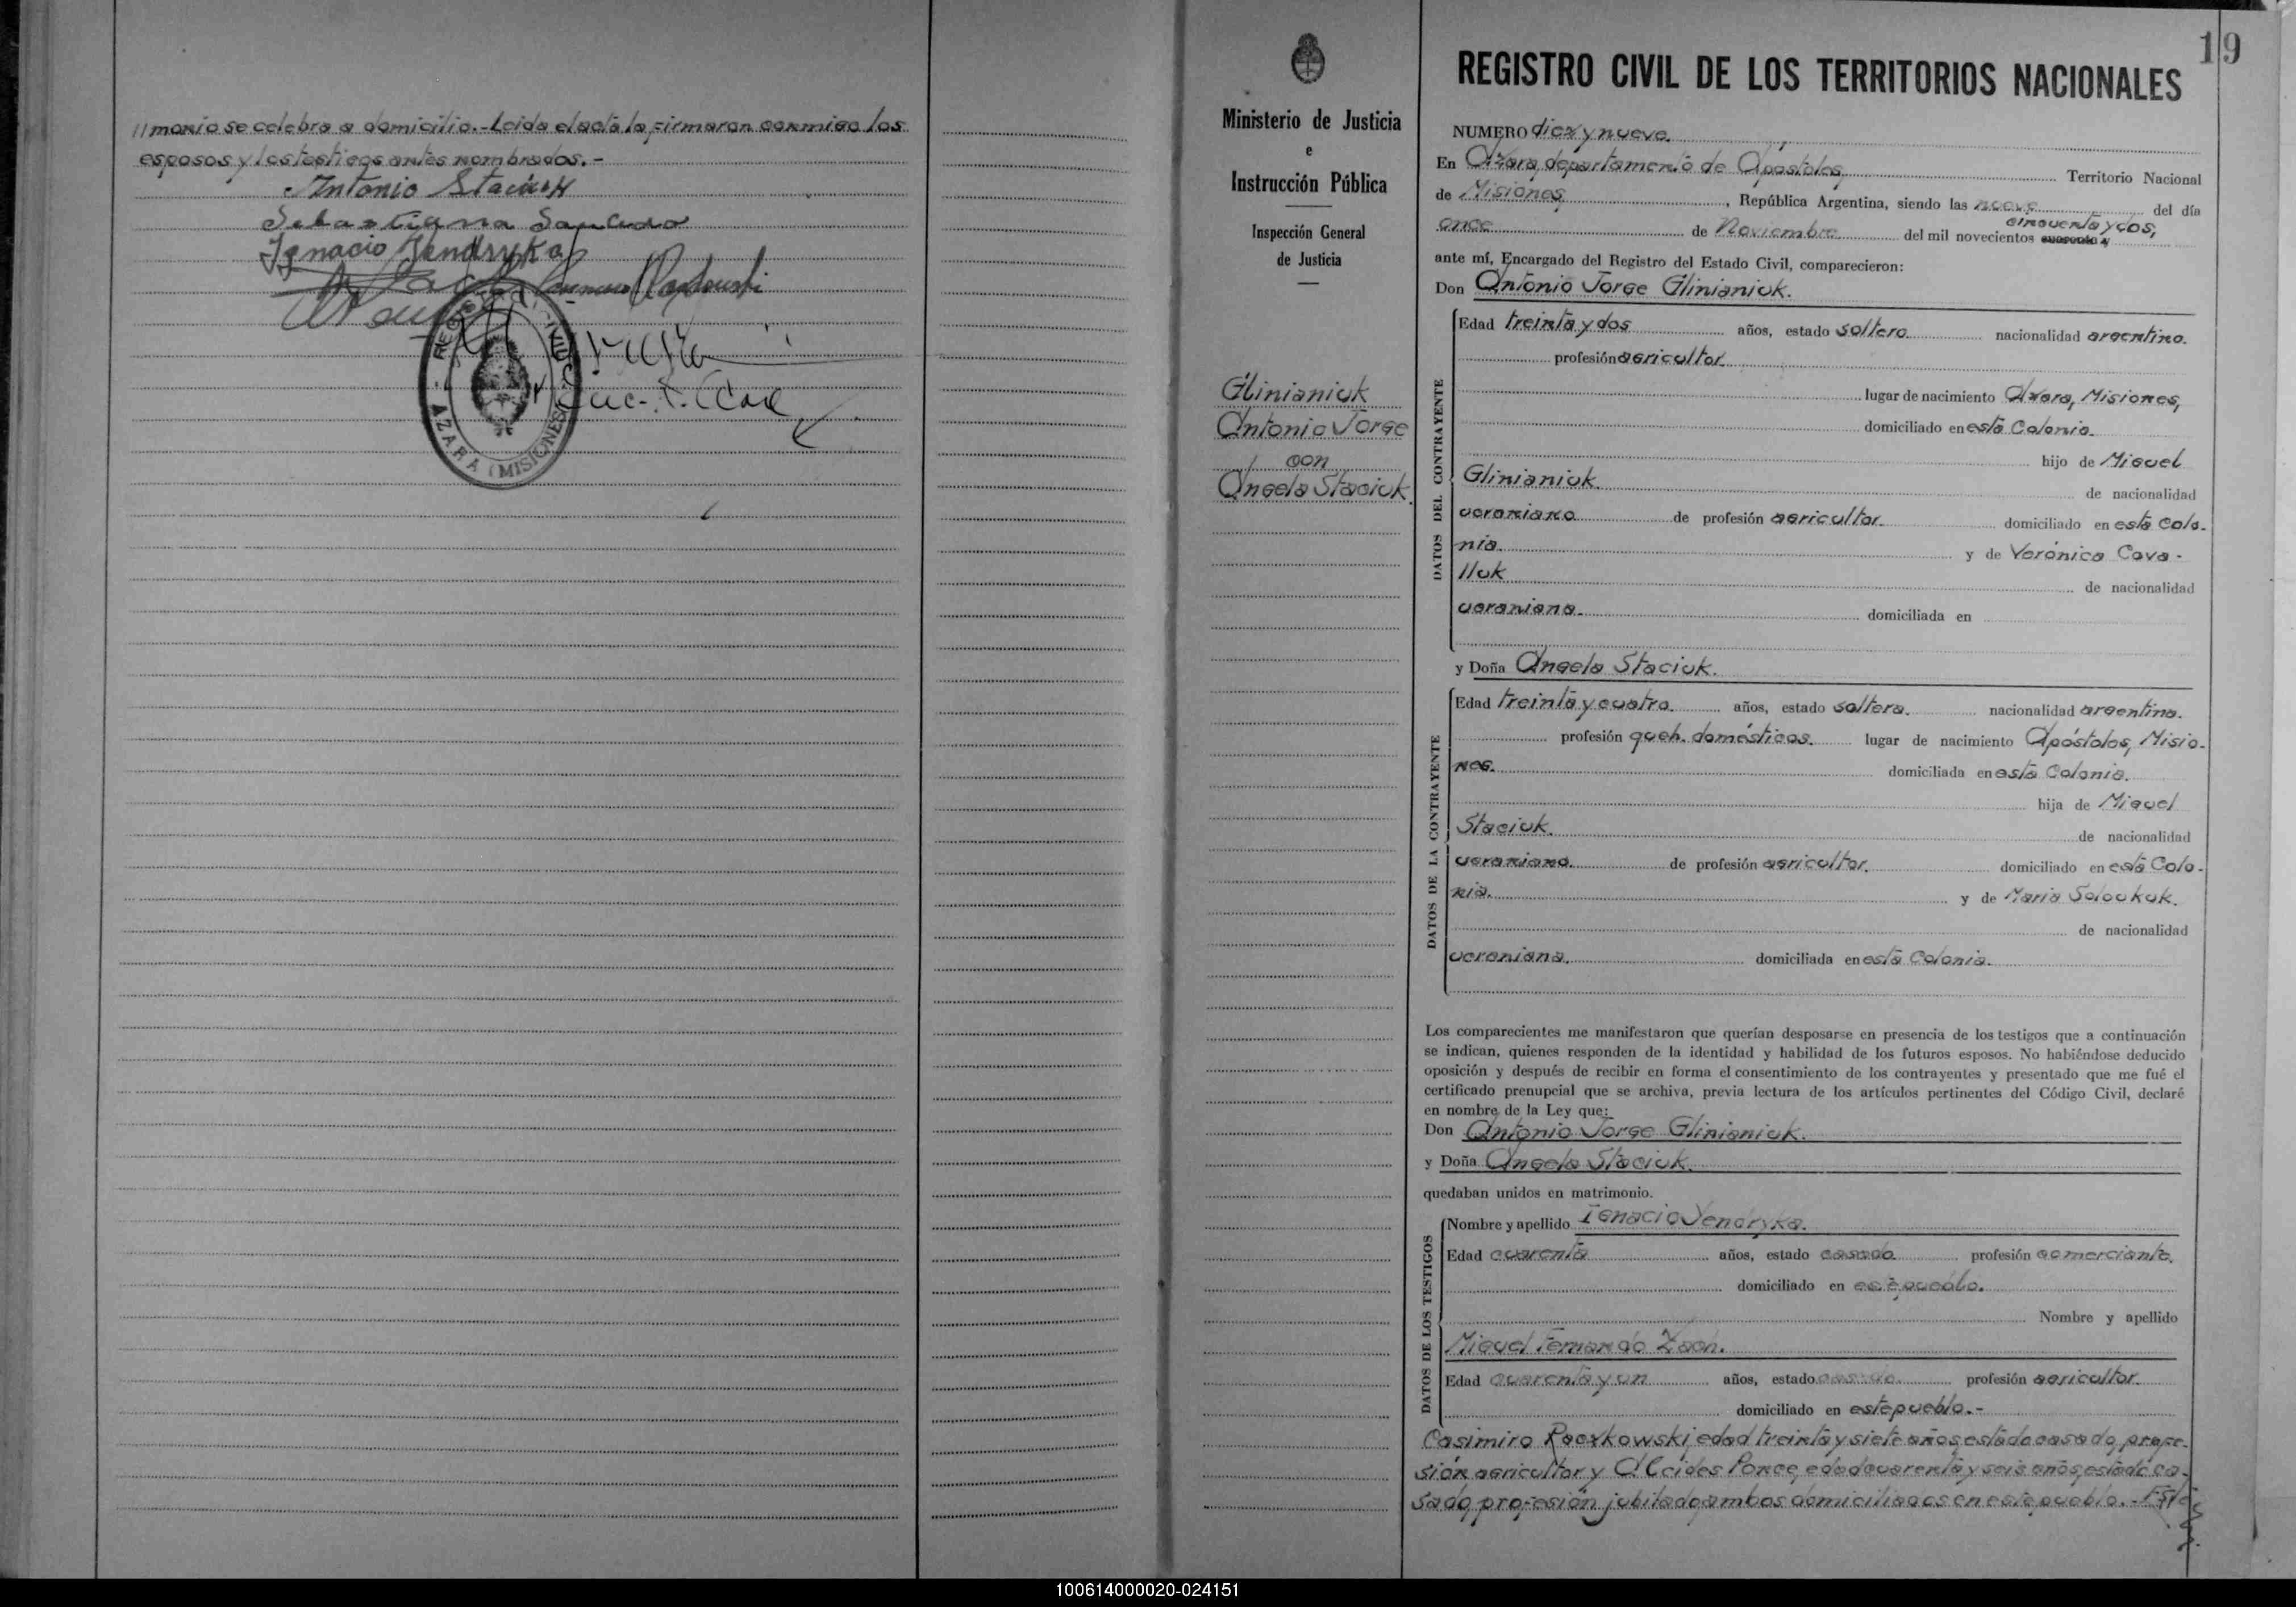 //monio se celebra a domicilio.-Leida el acta la firmaron conmigo los
esposos y los testigos antes nombrados.-
Antonio Staciuk
Sebastiana Saucedo
Ignacio Jendryka
REGISTRO CIVIL
AZARA (MISIONES)
Enc. R. Civil
19
Ministerio de Justicia
e
Instrucción Pública
Inspección General
de Justicia
Glinianiuk
Antonio Jorge
con
Angela Staciuk.
REGISTRO CIVIL DE LOS TERRITORIOS NACIONALES
NUMERO diez y nueve.
En Azara, departamento de Apóstoles, Territorio Nacional
de Misiones, República Argentina, siendo las nueve del día
cincuenta y dos,
once de Noviembre del mil novecientos cuarenta y
ante mí, Encargado del Registro del Estado Civil, comparecieron:
Don Antonio Jorge Glinianiuk.
DATOS DEL CONTRAYENTE
Edad treinta y dos años, estado soltero nacionalidad argentino.
profesión agricultor
lugar de nacimiento Azara, Misiones,
domiciliado en esta Colonia.
hijo de Miguel
Glinianiuk. de nacionalidad
ucraniano de profesión agricultor. domiciliado en esta Colo-
nia. y de Verónica Cava-
lluk de nacionalidad
ucraniana. domiciliada en
y Doña Angela Staciuk.
DATOS DE LA CONTRAYENTE
Edad treinta y cuatro. años, estado soltera. nacionalidad argentina.
profesión queh. domésticos. lugar de nacimiento Apóstoles, Misio-
nes. domiciliada en esta Colonia.
hija de Miguel
Staciuk. de nacionalidad
ucraniano. de profesión agricultor. domiciliado en esta Colo-
nia. y de Maria Soloukuk.
de nacionalidad
ucraniana. domiciliada en esta Colonia.
Los comparecientes me manifestaron que querían desposarse en presencia de los testigos que a continuación
se indican, quienes responden de la identidad y habilidad de los futuros esposos. No habiéndose deducido
oposición y después de recibir en forma el consentimiento de los contrayentes y presentado que me fué el
certificado prenupcial que se archiva, previa lectura de los artículos pertinentes del Código Civil, declaré
en nombre de la Ley que:
Don Antonio Jorge Glinianiuk.
y Doña Angela Staciuk.
quedaban unidos en matrimonio.
DATOS DE LOS TESTIGOS
Nombre y apellido Ignacio Jendryka.
Edad cuarenta años, estado casado profesión comerciante.
domiciliado en este pueblo.
Nombre y apellido
Miguel Fernando Zach.
Edad cuarenta y un años, estado casado. profesión agricultor.
domiciliado en este pueblo.-
Casimiro Raczkowski, edad treinta y siete años, estado casado, profe-
sión agricultor y Alcides Ponce, edad cuarenta y seis años, estado ca-
sado, profesión jubilado, ambos domiciliados en este pueblo.-Este
100614000020-024151